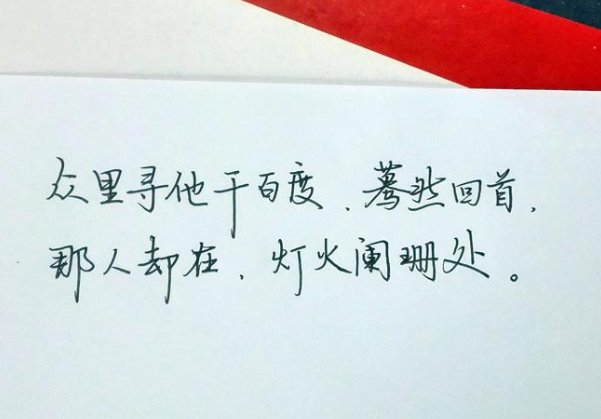 众里寻他千百度、蓦然回首,
那人却在,灯火阑珊处。